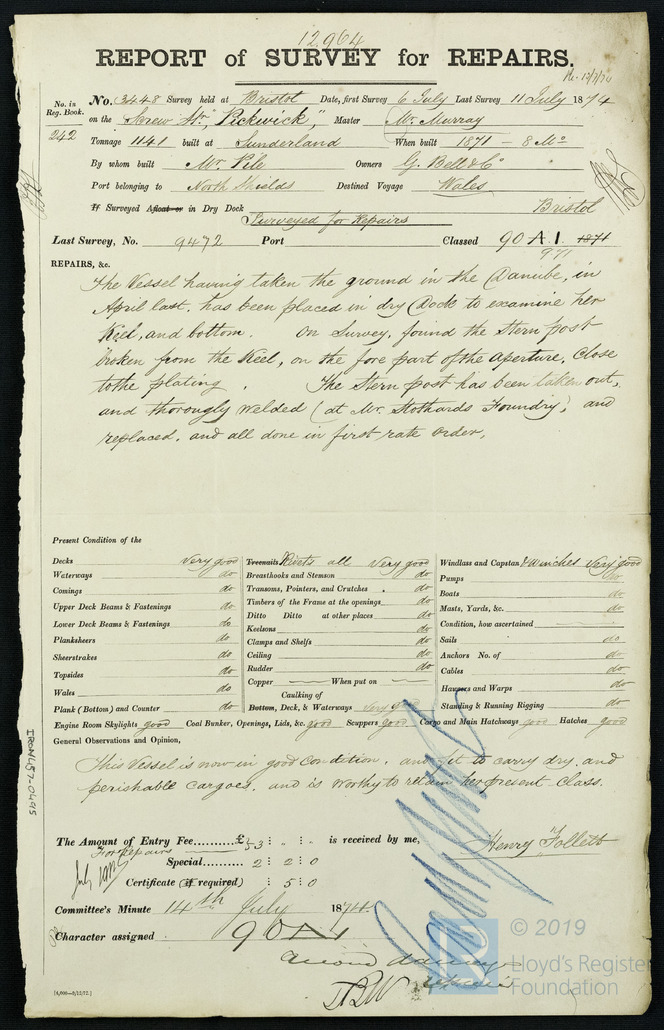 12964
REPORT of SURVEY for REPAIRS.
No. in Reg. Book. 242
No. 3448 Survey held at Bristol Date, first Survey 6 July Last Survey 11 July 1874
on the Screw Str, "Pickwick," Master Mr. Murray
Tonnage 1141 built at Sunderland When built 1871 - 8 Mo
By whom built Mr. Pile Owners G. Bell & Co
Port belonging to North Shields Destined Voyage Wales
If Surveyed Afloat or in Dry Dock Surveyed for Repairs Bristol
Last Survey, No. 9472 Port Classed 90 A.1. 1871
9/71
REPAIRS, &c.
The Vessel having taken the ground in the Danube, in
April last, has been placed in dry Dock to examine her
Keel, and bottom. On Survey, found the Stern post
broken from the Keel, on the fore part of the aperture, close
to the plating. The Stern post has been taken out,
and thorougly welded (at Mr. Stothards Foundry), and
replaced, and all done in first rate order,
Present Condition of the
Decks very good Treenails Rivets all Very good Windlass and Capstan & winches very good
Waterways do Breasthooks and Stemson do Pumps do
Comings do Transoms, Pointers, and Crutches . do Boats do
Upper Deck Beams & Fastenings do Timbers of the Frame at the openings do Masts, Yards, &c. do
Lower Deck Beams & Fastenings do Ditto Ditto at other places do Condition, how ascertained
Planksheers do Keelsons do Sails do
Sheerstrakes do Clamps and Shelfs do Anchors No. of do
Topsides do Ceiling do Cables do
Wales do Rudder do Hawsers and Warps do
Plank (Bottom) and Counter do Copper When put on Standing & Running Rigging do
Caulking of
Bottom, Deck, & Waterways very good
Engine Room Skylights good Coal Bunker, Openings, Lids, &c. good Scuppers good Cargo and Main Hatchways good Hatches good
General Observations and Opinion,
This Vessel is now in good Condition, and fit to carry dry and
perishable cargoes, and is worthy to retain her present class.
The Amount of Entry Fee..........£ 3 : " : " is received by me, Henry Follett
For Repairs
Special......... 2 : 2 : 0
Certificate (if required) : 5 : 0
Committee's Minute 14th July 1874
Character assigned 90 A 1
TBW
[4,000—9/12/72.]
IRON457-0495
© 2019
Lloyd's Register
Foundation